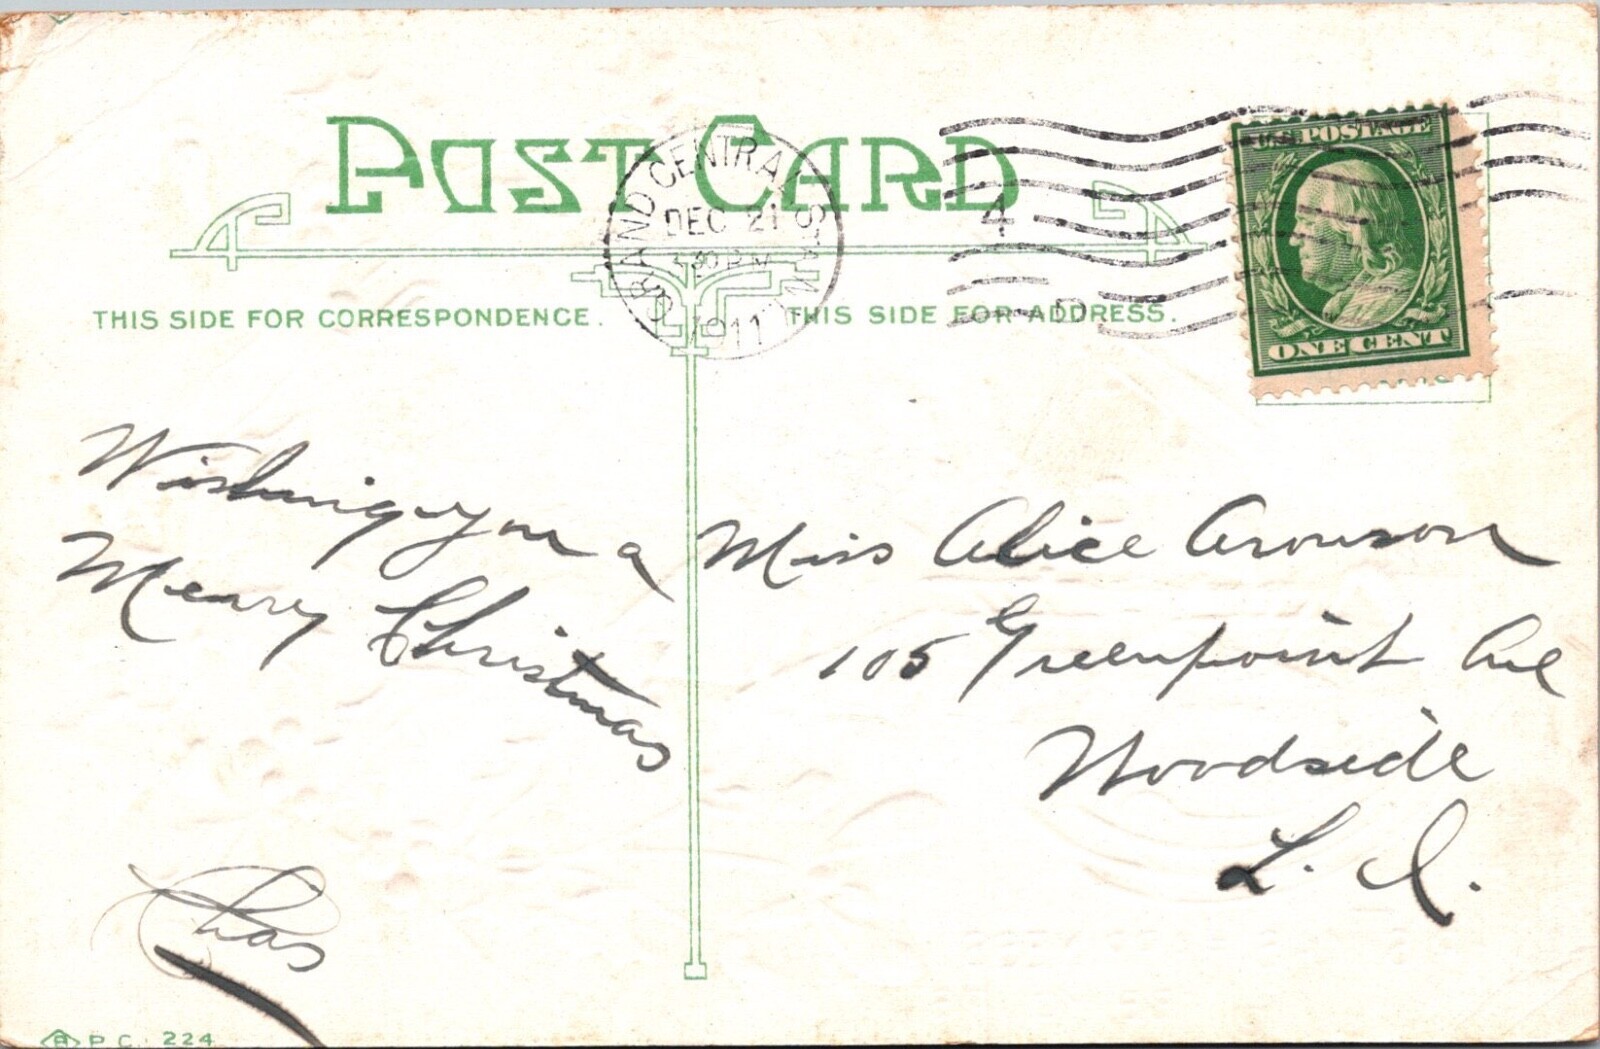 POST CARD
GRAND CENTRAL STA. N.Y.
DEC 21
30 PM
1911
4
D
U.S. POSTAGE
ONE CENT
THIS SIDE FOR CORRESPONDENCE.
THIS SIDE FOR ADDRESS.
Wishing you a
Merry Christmas
Chas
Miss Alice Aronson
105 Greenpoint Ave
Woodside
L. I.
P. C. 224